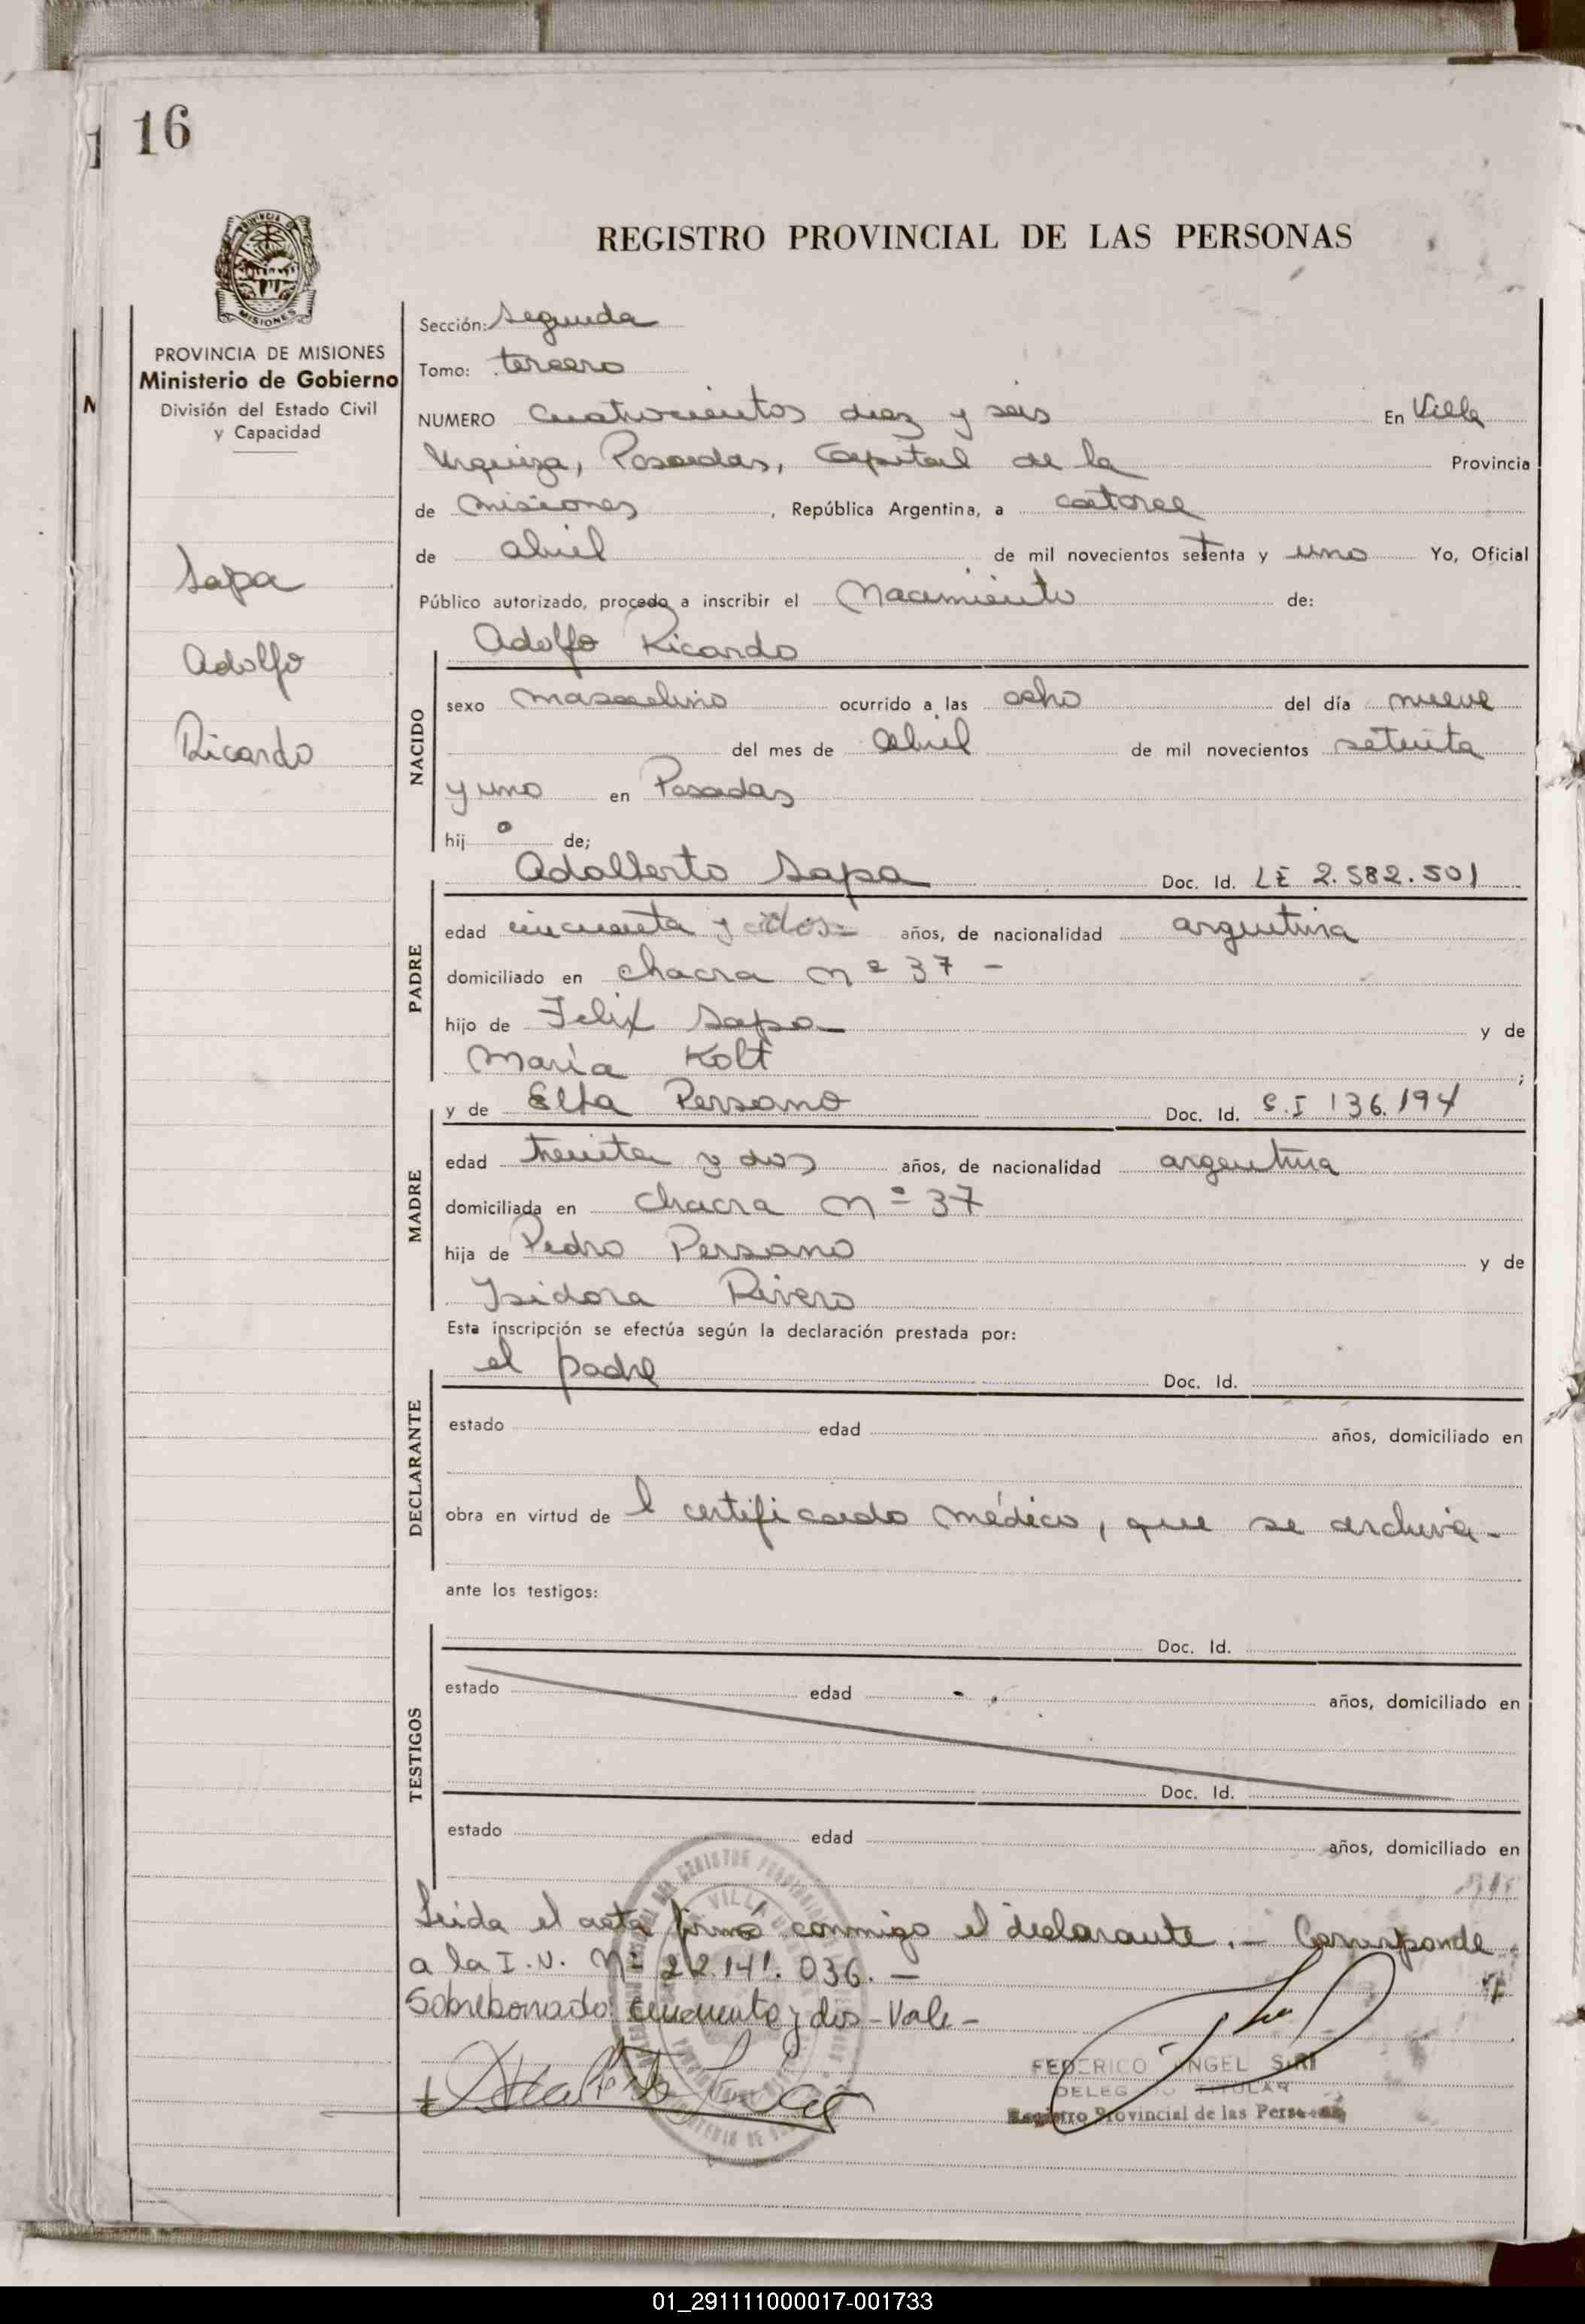 16
REGISTRO PROVINCIAL DE LAS PERSONAS
PROVINCIA DE MISIONES
Ministerio de Gobierno
División del Estado Civil
y Capacidad
MISIONES
Sapa
Adolfo
Ricardo
Sección: Segunda
Tomo: tercero
NUMERO cuatrocientos diez y seis En Villa
Urquiza, Posadas, Capital de la Provincia
de Misiones, República Argentina, a catorce
de abril de mil novecientos setenta y uno Yo, Oficial
Público autorizado, procedo a inscribir el Nacimiento de:
Adolfo Ricardo
NACIDO
sexo masculino ocurrido a las ocho del día nueve
del mes de abril de mil novecientos setenta
y uno en Posadas
hijo de;
Adalberto Sapa Doc. Id. LE 2.582.501
PADRE
edad cincuenta y dos= años, de nacionalidad argentina
domiciliado en chacra nº 37 -
hijo de Felix Sapa y de
María Kolt ;
y de Elba Persano Doc. Id. C.I 136.194
MADRE
edad treinta y dos años, de nacionalidad argentina
domiciliada en chacra nº 37
hija de Pedro Persano y de
Isidora Rivero
Esta inscripción se efectúa según la declaración prestada por:
el padre Doc. Id.
DECLARANTE
estado edad años, domiciliado en
obra en virtud de l certificado médico, que se archiva-
ante los testigos:
Doc. Id.
TESTIGOS
estado edad años, domiciliado en
Doc. Id.
estado edad años, domiciliado en
Leida el acta firmó conmigo el declarante.- Corresponde
a la I.N. Nº 22.141.036.-
Sobreborrado: cincuenta y dos - Vale -
FEDERICO ANGEL SIRI
DELEGADO TITULAR
Registro Provincial de las Personas
01_291111000017-001733